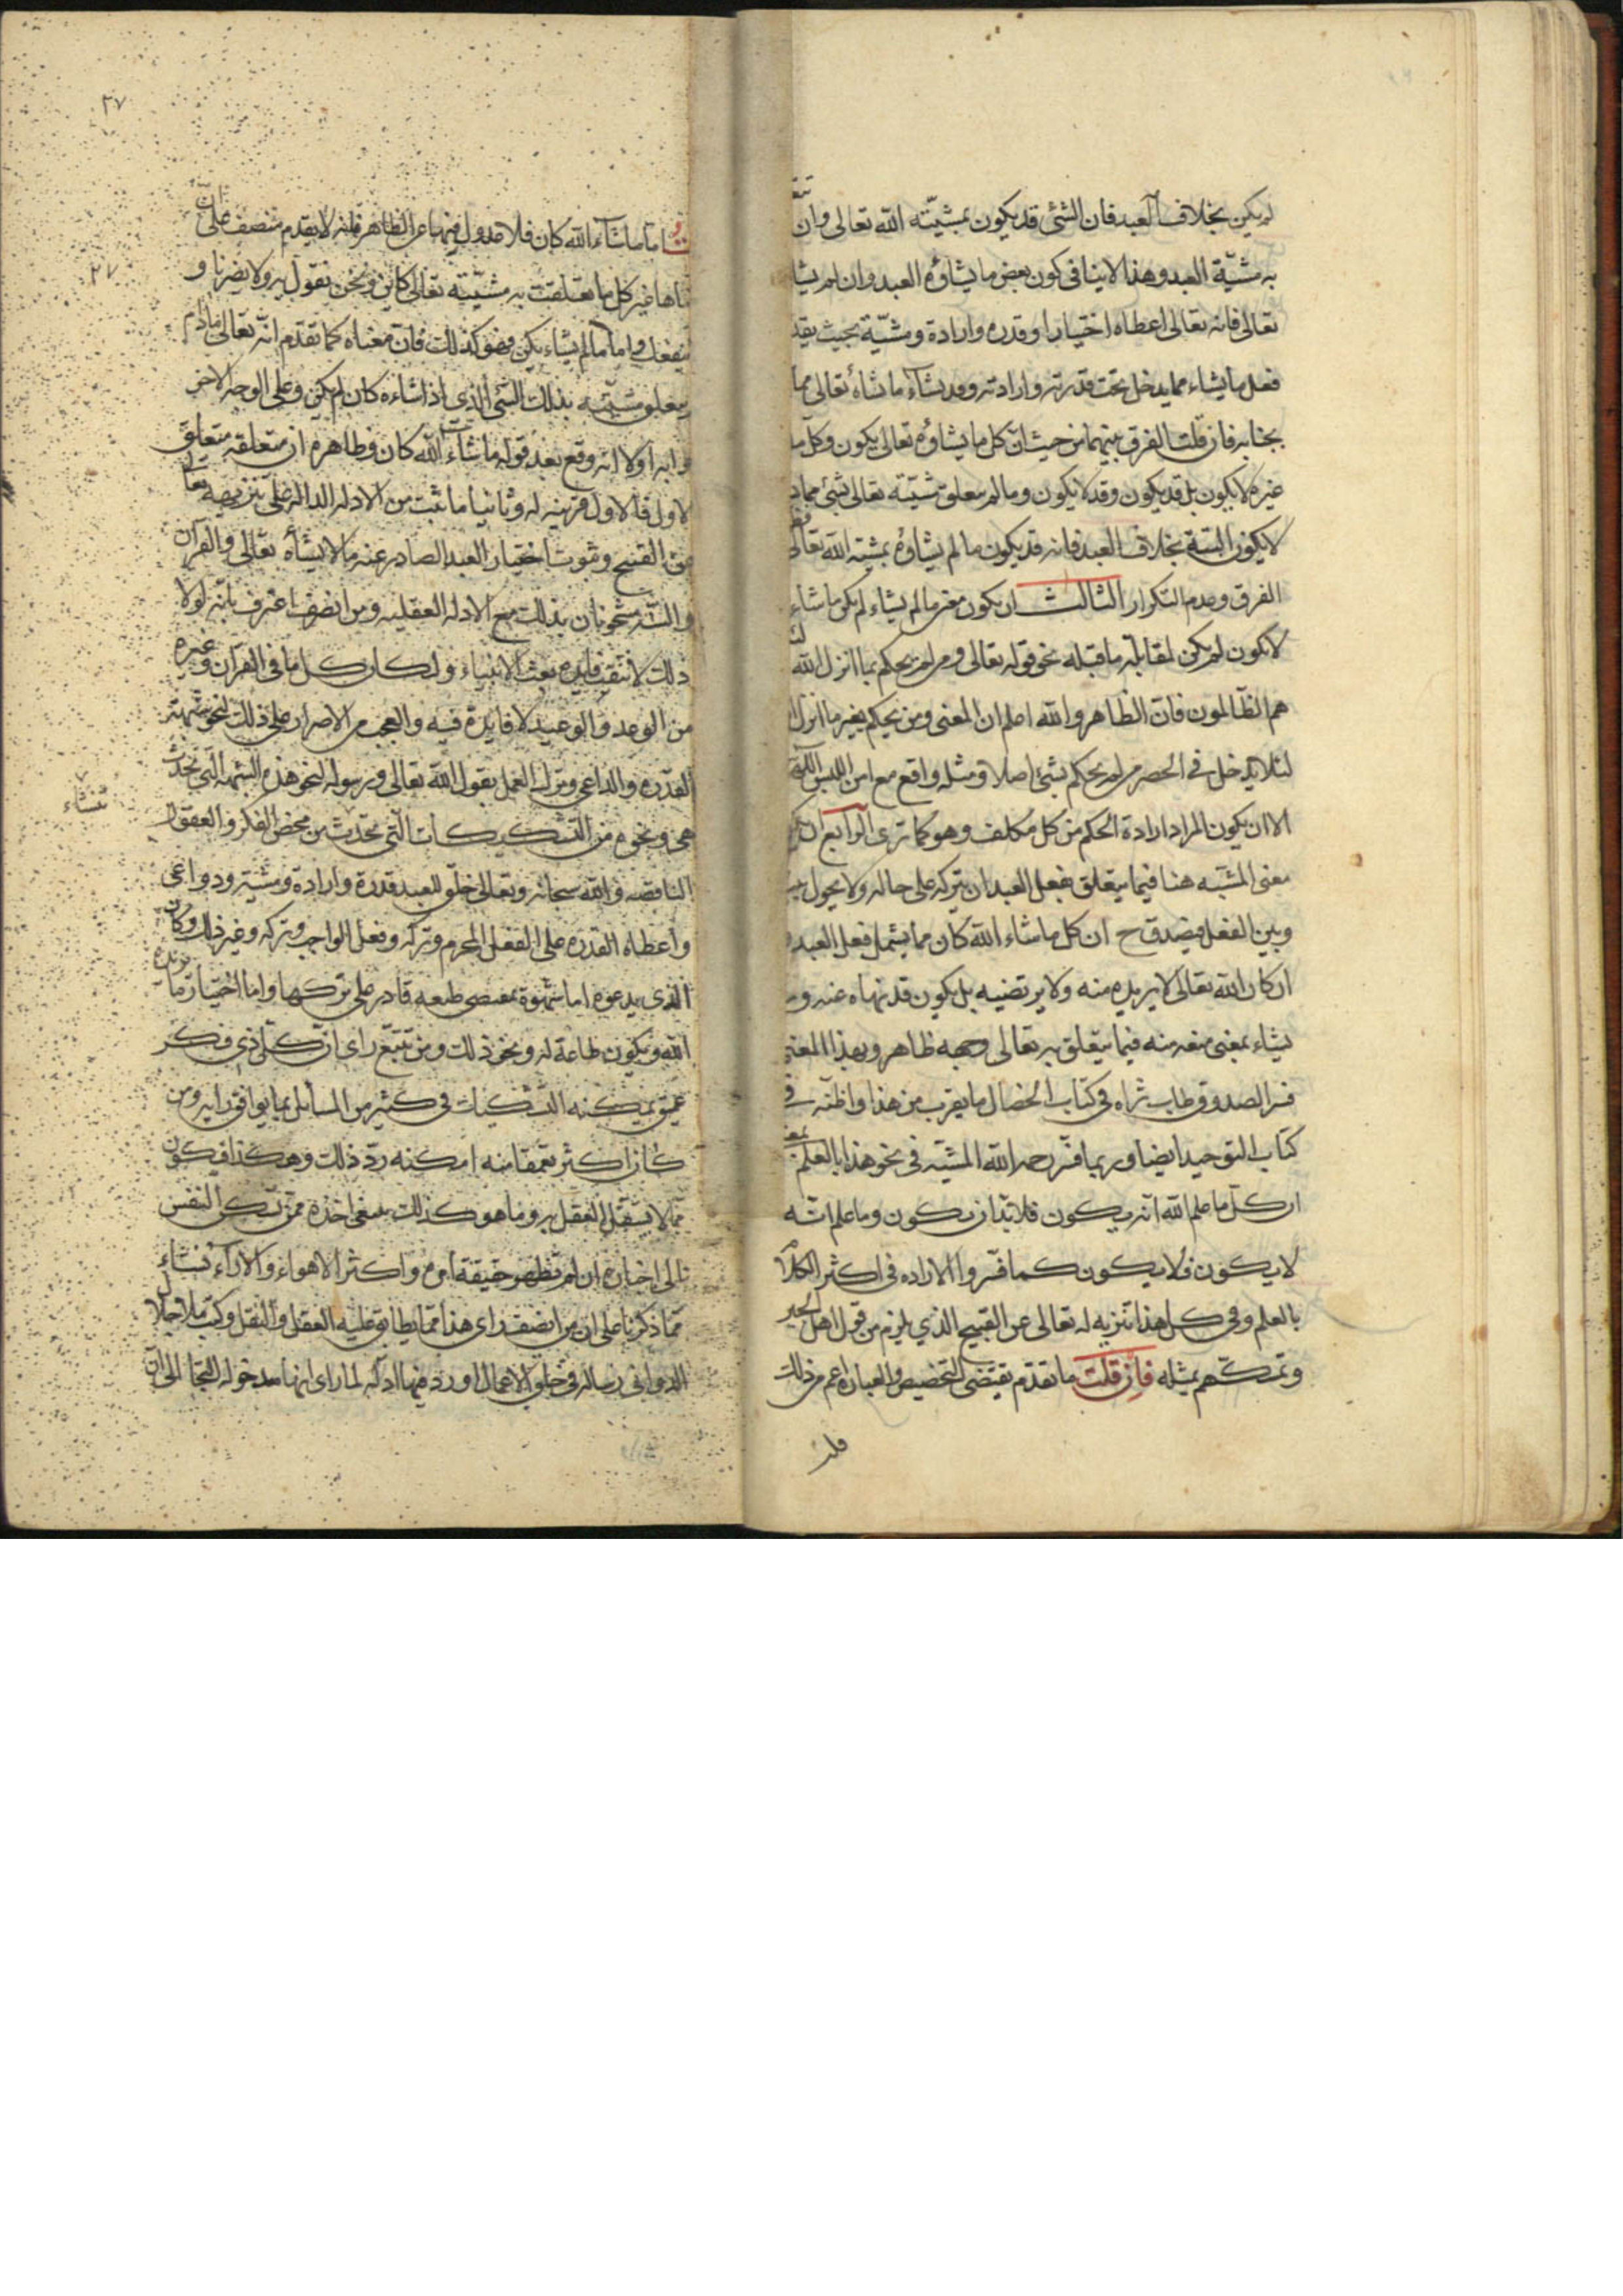 لم يكن بخلاف العبد فان الشئ قد يكون بمشيّته الله تعالى وان
به مشيّة العبد وهذا لا ينافى كون بعض ما يشاؤه العبد وان لم يشا
تعالى فانه تعالى اعطاه اختيارا وقدره وارادة ومشيّة بحيث يقد
فعل ما يشاء مما يدخل تحت قدرته وارادته وقد يشاء ما شاء تعالى مما
بجنابه فان قلت الفرق بينهما من حيث ان كل ما يشاؤه تعالى يكون وكل ما
غيره لا يكون بل قد يكون وقد لا يكون وما لم يتعلق مشيّته تعالى بشئ مما
لا يكون البتة بخلاف العبد فانه قد يكون ما لم يشاؤه بمشيته الله تعالى
الفرق وعدم التكرار الثالث ان يكون معنى ما لم يشاء لم يكن ما شاء
لا يكون لم يكن لمقابلة ما قبله نحو قوله تعالى ومن لم يحكم بما انزل الله
هم الظالمون فان الظاهر والله اعلم ان المعنى ومن يحكم بغير ما انزل
لئلا يدخل فى الحصر من لم يحكم بشئ اصلا ومثله واقع مع امن اللبس اللهم
الا ان يكون المراد ارادة الحكم من كل مكلف وهو كما ترى الرابع ان يكون
معنى المشيّه هنا فيما يتعلق بفعل العبد ان يتركه على حاله ولا يحول
وبين الفعل فيصدق ح ان كل ما شاء الله كان مما يشمل فعل العبد
ان كان الله تعالى لا يريده منه ولا يرتضيه بل يكون قد نهاه عنه
يشاء بمعنى منعه منه فيما يتعلق به تعالى وجهه ظاهر وبهذا المعنى
فسر الصدوق طاب ثراه فى كتاب الخصال ما يقرب من هذا واظنه فى
كتاب التوحيد ايضا وربما فسر رحمه الله المشيّه فى نحو هذا بالعلم بمعنى
ان كل ما علم الله انه يكون فلا بد ان يكون وما علم انّه
لا يكون فلا يكون كما فسروا الاراده فى اكثر الكلام
بالعلم وفى كل هذا تنزيه له تعالى عن القبيح الذي يلزم من قول اهل الجبر
وتمسكهم بمثله فان قلت ما تقدم يقتضى التخصيص والعبارة اعم من ذلك
قلت
٢٧
٢٧
اما ما شاء الله كان فلا عدول فيها عن الظاهر فانه لا يقدم منصف على ان
كل ما تعلقت به مشيّته تعالى كاين ونحن نقول به ولا يضرنا و
ينفعك واما ما لم يشاء يكن فهو كذلك فان معناه كما تقدم انه تعالى ما لم
يتعلق مشيته بذلك الشئ الذي اذا شاءه كان لم يكن وعلى الوجه الاخر
اولا انه وقع بعد قوله ما شاء الله كان وظاهره ان متعلقه متعلق
لاول فالاول قرينه له وثانيا ما ثبت من الادله الداله على تنزيهه تعالى
عن القبيح وثبوت اختيار العبد الصادر عنه ما لا يشاه تعالى والقرآن
والسنّه مشحونان بذلك مع الادله العقليه ومن انصف اعترف بانه لولا
ذلك لانتفت فايده بعث الانبياء ولكان كل ما فى القرآن وغيره
من الوعد والوعيد لا فايدة فيه والعجب من الاصرار على ذلك لنحو شبهة
القدره والداعى وترك العمل بقول الله تعالى ورسوله لنحو هذه الشبهة التى تحدث
هى ونحوه من التشكيكات التى تحدث من محض الفكر والعقول
تنشاء
الناقصه والله سبحانه وتعالى خلق للعبد قدرة وارادة ومشيّه ودواعى
واعطاه القدره على الفعل المحرم وتركه وفعل الواجب وتركه وغير ذلك وكان
الذى يدعوه اما شهوة بمقتضى طبعه قادر على تركها واما اختيار ما يريده
الله ويكون طاعة له ونحو ذلك ومن تتبع راى ان كل ذى فكر
عميق يمكنه التشكيك فى كثير من المسائل بما يوافق رايه ومن
كان اكثر تعمقا منه امكنه ردّ ذلك وهكذا فيكون
مما لا يستقل العقل به وما هو كذلك ينبغى اخذه ممن تسكن النفس
الى اخباره ان لم تظهر حقيقة امره واكثر الاهواء والاراء تنشاء
مما ذكرنا على ان من انصف راى هذا مما يطابق عليه العقل والنقل وكتب ملا جلال
الدوانى رساله فى خلق الاعمال اورد فيها ادله لما راى انها مدخوله التجا الى ان